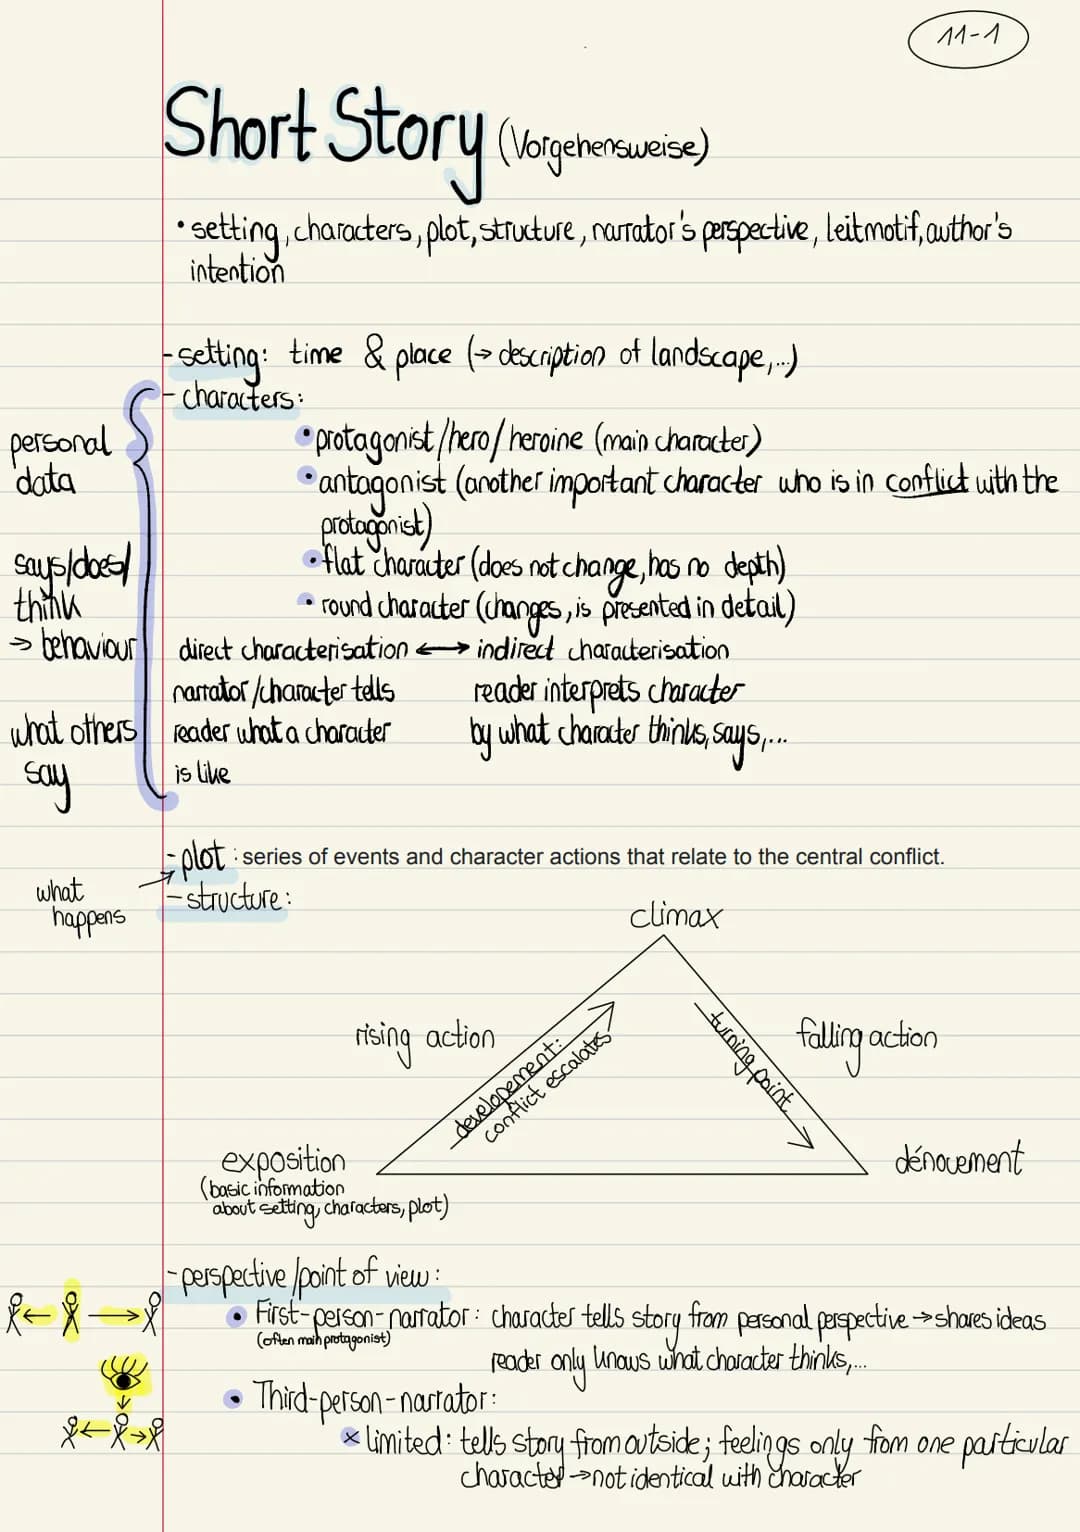 11-1
Short Story (Vorgehensweise)
• setting, characters, plot, structure, narrator's perspective, leitmotif, author's
intention
- setting: time & place (→ description of landscape,...)
- characters:
personal
data
says/does/
think
→ behaviour
what others
say
• protagonist/hero/heroine (main character)
• antagonist (another important character who is in conflict with the
protagonist)
• flat character (does not change, has no depth)
• round character (changes, is presented in detail)
direct characterisation ↔ indirect characterisation
narrator/character tells reader interprets character
reader what a character by what character thinks, says,...
is like
- plot: series of events and character actions that relate to the central conflict.
what
happens
- structure:
climax
rising action
developement:
conflict escalates
turning point
falling action
exposition
(basic information
about setting, characters, plot)
dénouement
- perspective/point of view:
• First-person-narrator: character tells story from personal perspective → shares ideas
(often main protagonist)
reader only knows what character thinks,...
• Third-person-narrator:
× limited: tells story from outside; feelings only from one particular
character → not identical with character